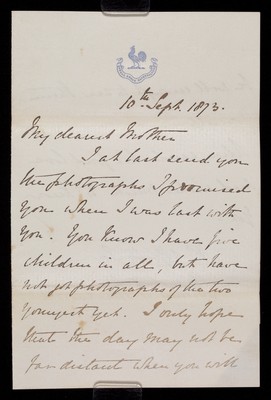 10th Sept. 1873.
My dearest Mother
I at last send you
the photographs I promised
you when I was last with
you. You know I have five
children in all, but have
not got photographs of the two
youngest yet. I only hope
that the day may not be
far distant when you will